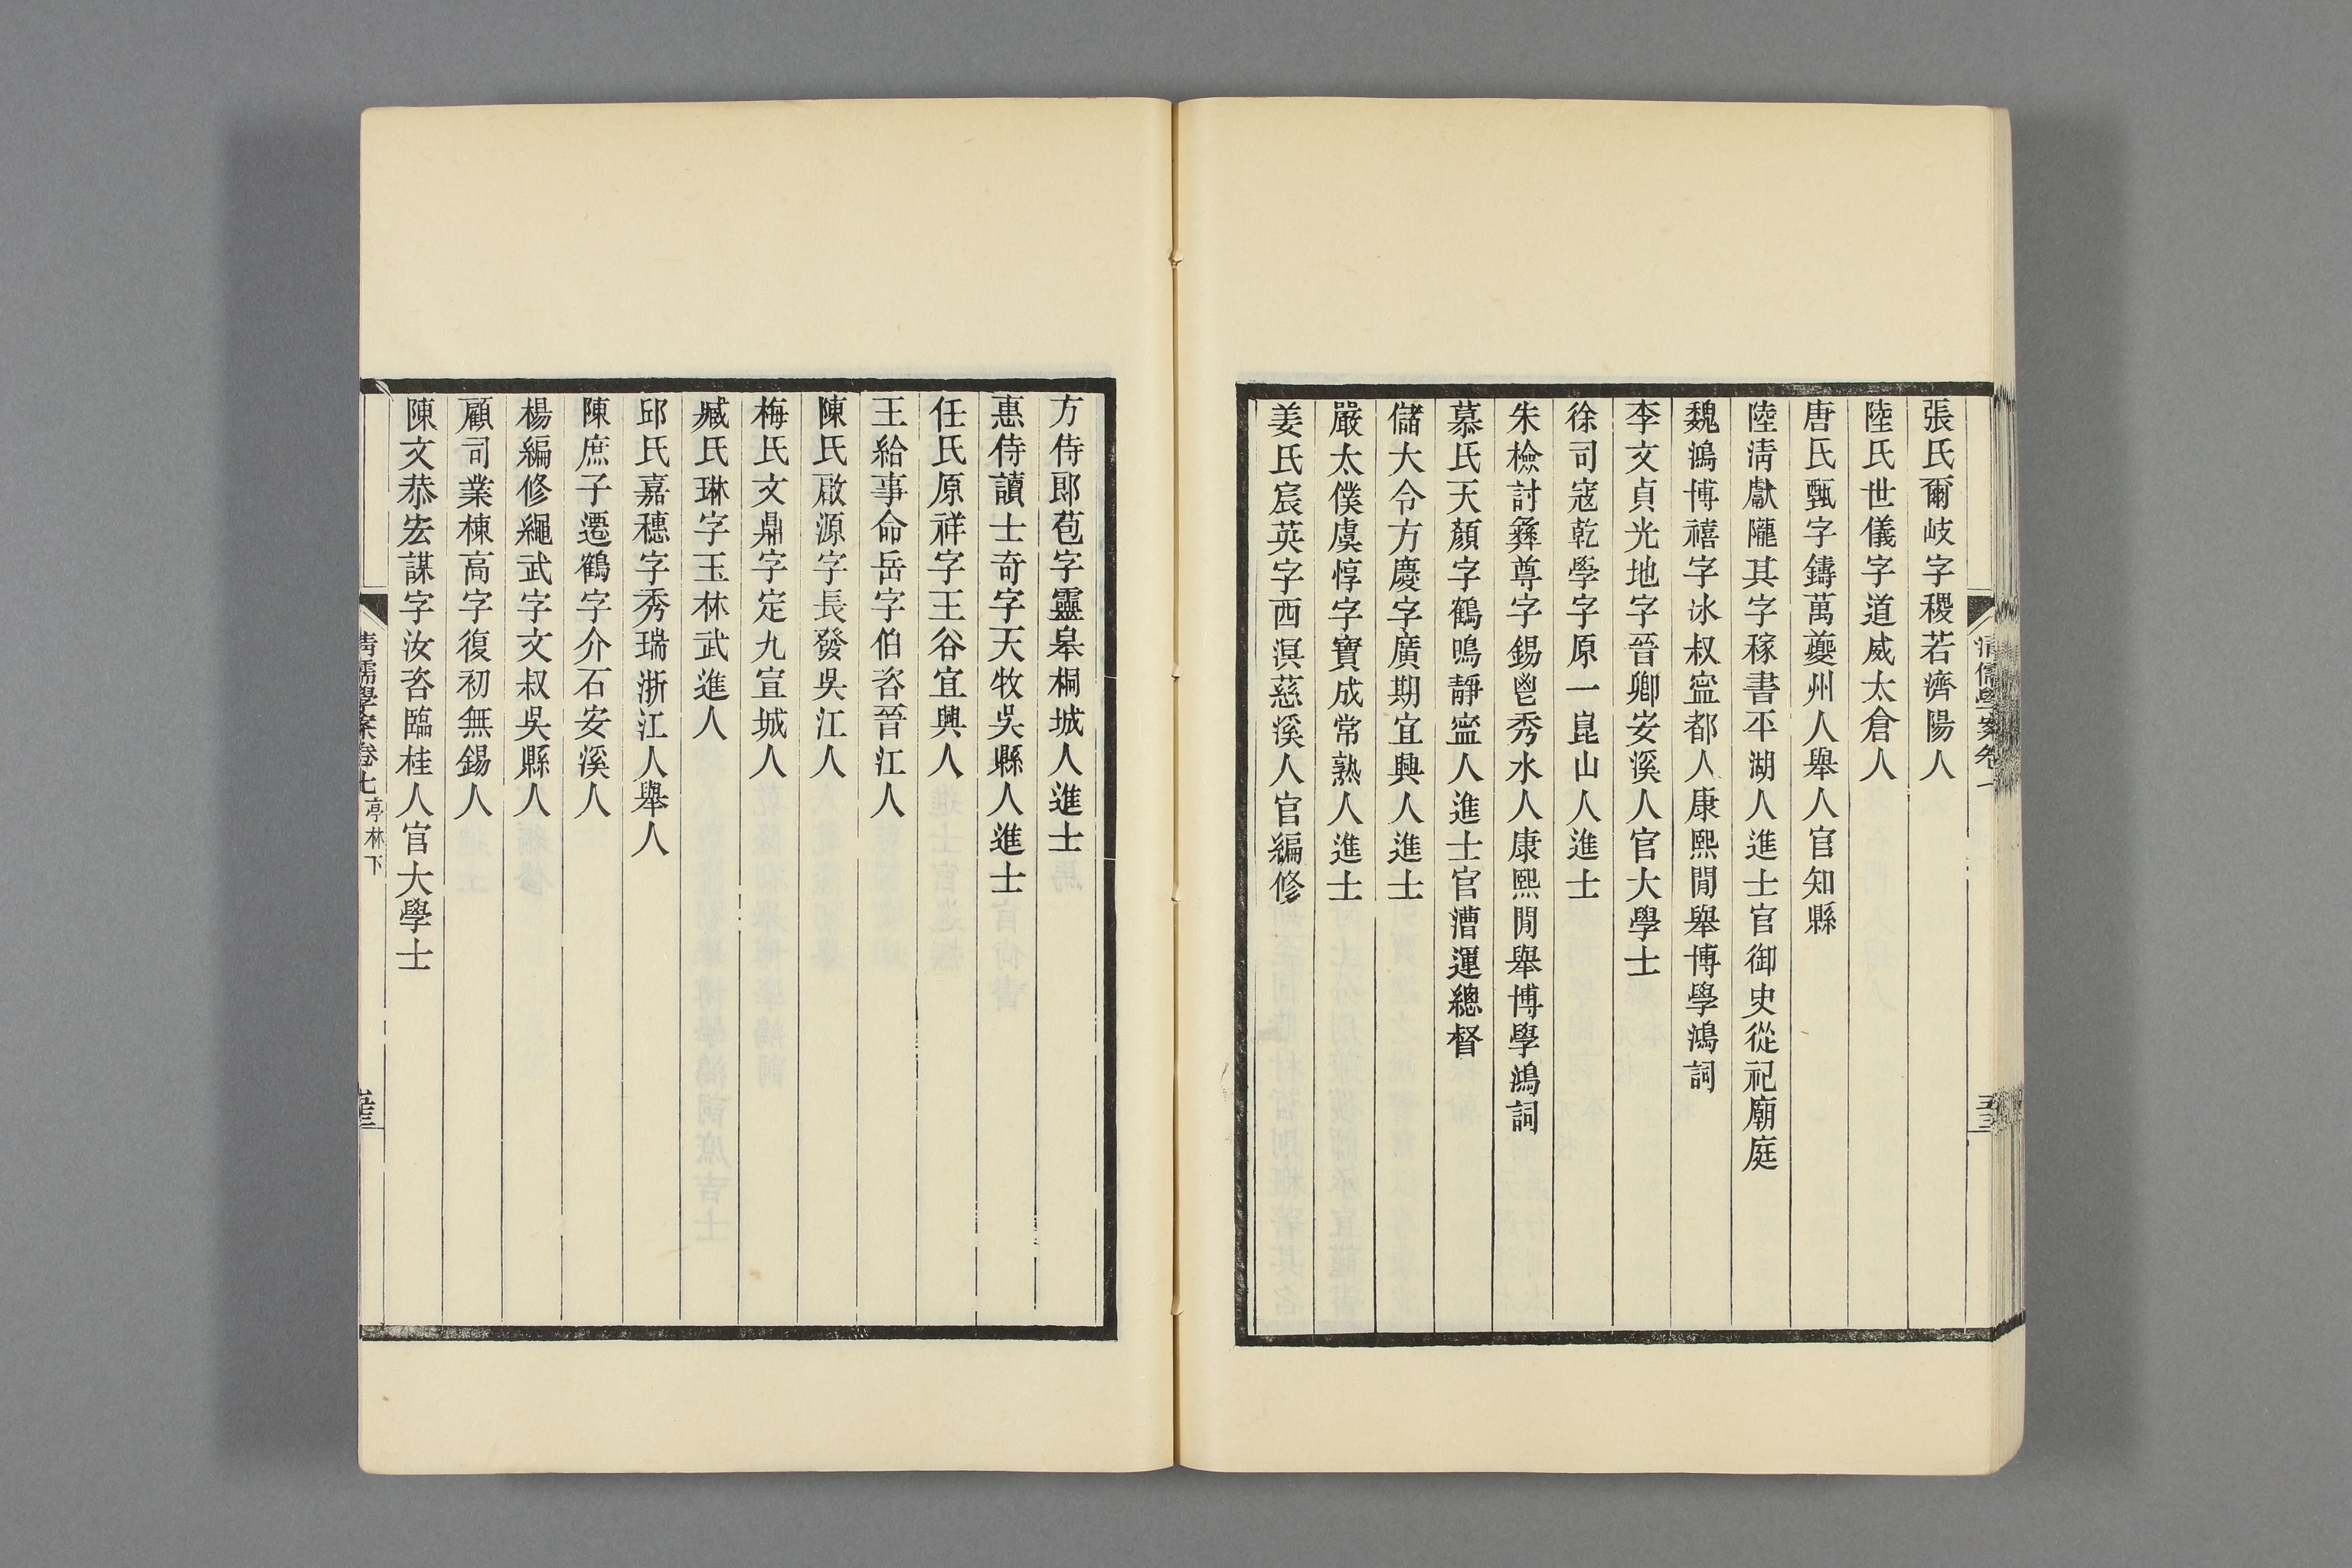 張氏爾岐字稷若濟陽人
陸氏世儀字道威太倉人
唐氏甄字鑄萬夔州人舉人官知縣
陸淸獻隴其字稼書平湖人進士官御史從祀廟庭
魏鴻博禧字冰叔寍都人康熙閒舉博學鴻詞
李文貞光地字晉卿安溪人官大學士
徐司寇乾學字原一崑山人進士
朱檢討彝尊字錫鬯秀水人康熙閒舉博學鴻詞
慕氏天顏字鶴鳴靜寍人進士官漕運總督
儲大令方慶字廣期宜興人進士
嚴太僕虞惇字寶成常熟人進士
姜氏宸英字西溟慈溪人官編修
方侍郎苞字靈皋桐城人進士
惠侍讀士奇字天牧吳縣人進士
任氏原祥字王谷宜興人
王給事命岳字伯咨晉江人
陳氏啟源字長發吳江人
梅氏文鼎字定九宣城人
臧氏琳字玉林武進人
邱氏嘉穗字秀瑞浙江人舉人
陳庶子遷鶴字介石安溪人
楊編修繩武字文叔吳縣人
顧司業棟高字復初無錫人
陳文恭宏謀字汝咨臨桂人官大學士
清儒學案卷七 亭林下